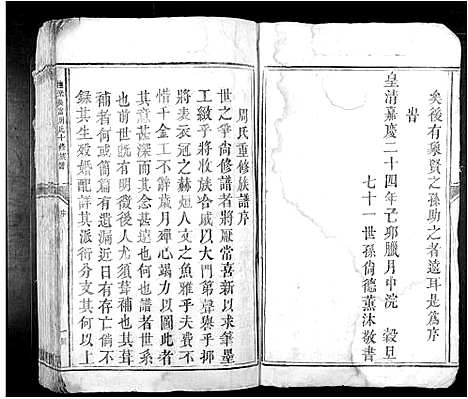 矣後有聚賢之孫助之者遠耳是為序
皆
皇清嘉慶二十四年己卯臘月中浣 穀旦
七十一世孫尙德薰沐敬書
周氏重修族譜序
世之華尙修譜者將厭常喜新以求筆墨
工緻乎將收族合咸以大門第聲與乎抑
將表衣冠之赫烜人文之魚雅乎夫費不
惜千金工不辭歲月殫心竭力以圖此者
其意念甚遠也何也譜者世系
前世既有明徵後人尤須葺補也其葺
補者何或簡篇內有存亡倘不
錄其生歿婚配詳其派衍分支其何以上
序